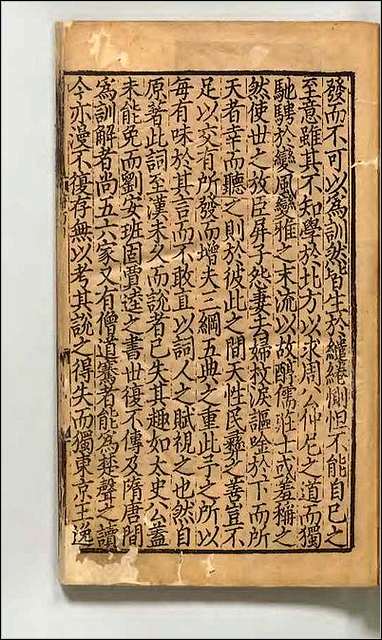 發而不可以為訓然皆生於繾綣惻怛不能自已之
至意雖其不知學於北方以求周公仲尼之道而獨
馳騁於變風變雅之末流以故醇儒莊士或羞稱之
然使世之放臣屏子怨妻去婦抆淚謳唫於下而所
天者幸而聽之則於彼此之間天性民彝之善豈不
足以交有所發而增夫三綱五典之重此予之所以
每有味於其言而不敢直以詞人之賦視之也然自
原著此詞至漢未久而說者已失其趣如太史公蓋
未能免而劉安班固賈逵之書世復不傳及隋唐間
為訓解者尚五六家又有僧道騫者能為楚聲之讀
今亦漫不復存無以考其說之得失而獨東京王逸